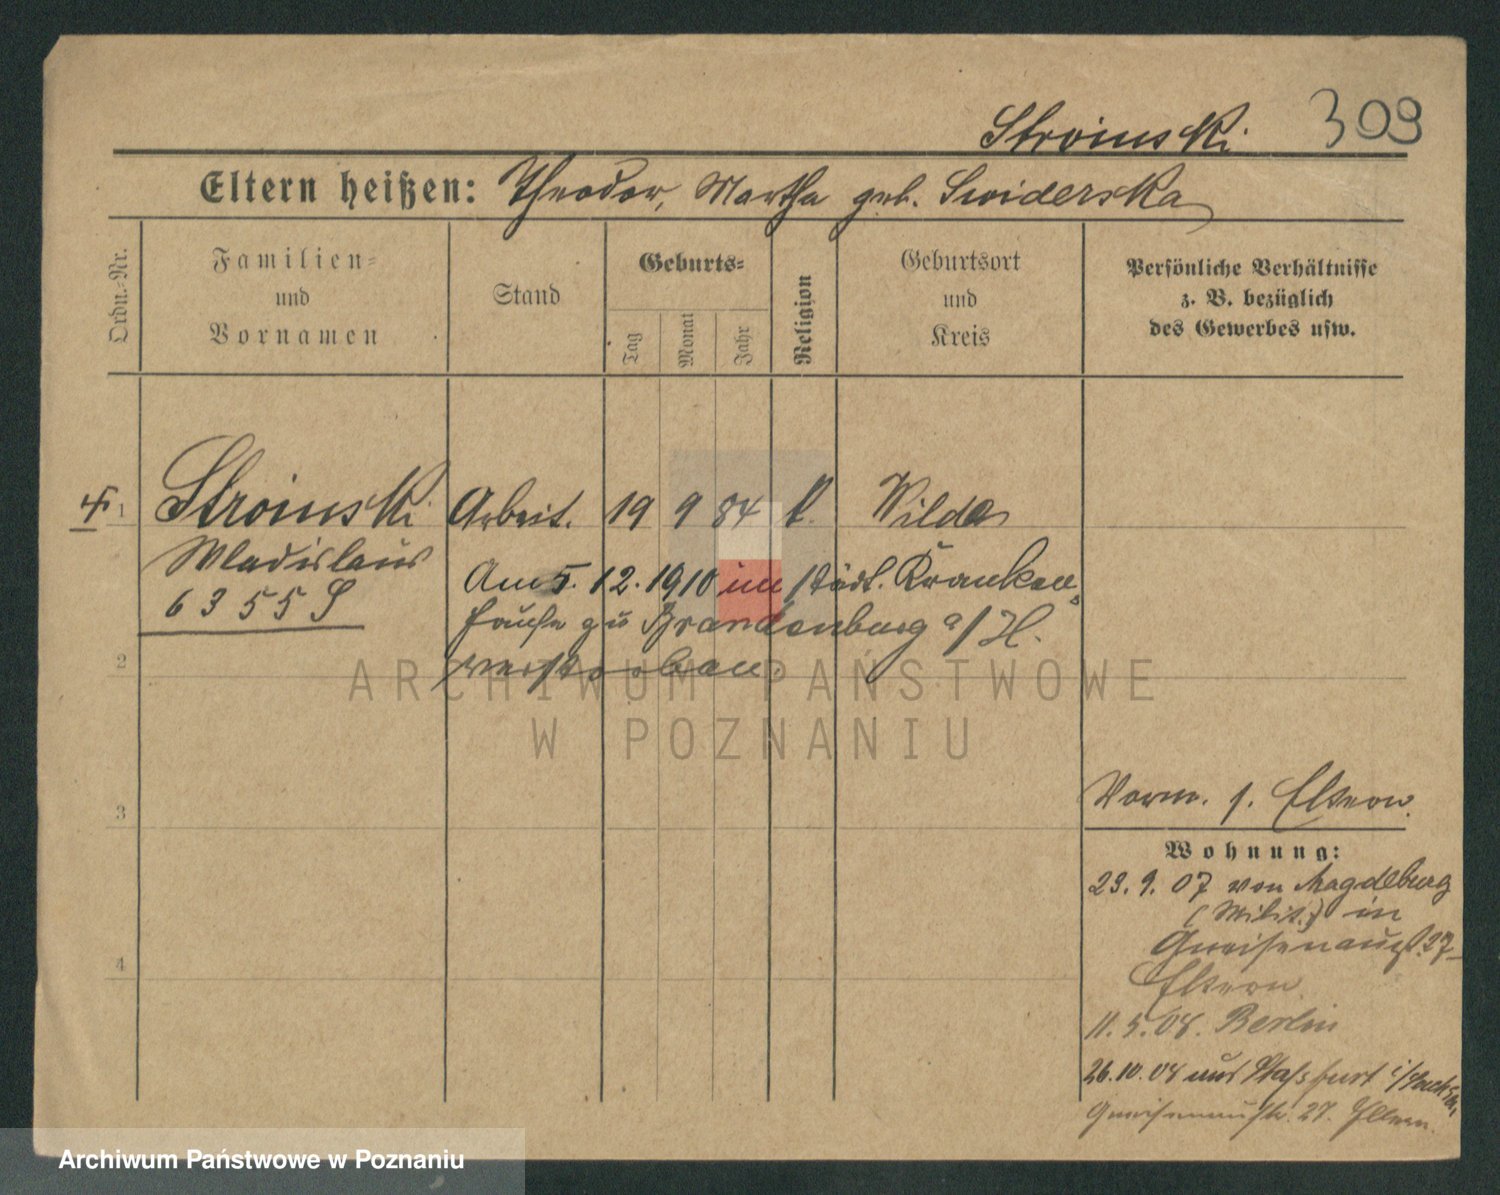 Stroinski
309
Eltern heißen: Theodor, Martha geb. Swiderska
Ordn.-Nr.
Familien-
und
Vornamen
Stand
Geburts-
Tag
Monat
Jahr
Religion
Geburtsort
und
Kreis
Persönliche Verhältnisse
z. B. bezüglich
des Gewerbes usw.
1 Stroinski Arbeit. 19 9 84 k. Wilda
Wladislaus
6355 S
Am 5. 12. 1910 im städt. Kranken-
hause zu Brandenburg a/H.
verstorben.
2
3
4
ARCHIWUM PAŃSTWOWE
W POZNANIU
Vorm. s. Eltern.
Wohnung:
23. 9. 07 von Magdeburg
(Milit.) in
Gneisenaust. 27
Eltern
11. 5. 08. Berlin
26.10.08 aus Staßfurt i/Sachsen
Gneisenaustr. 27. Eltern.
Archiwum Państwowe w Poznaniu